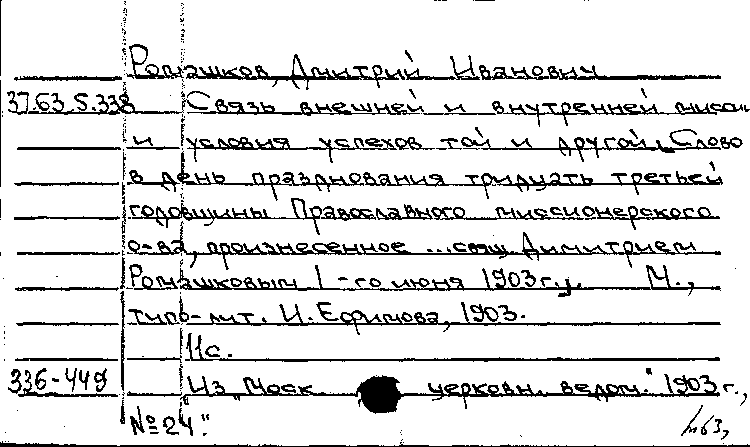 Ромашков, Дмитрий Иванович
37.63.5.338 Связь внешней и внутренней миссии
и условия успехов той и другой. Слово
в день празднования тридцать третьей
годовщины Православного миссионерского
о-ва, произнесенное ... свящ. Димитрием
Ромашковым 1-го июня 1903 г. М.,
типо-лит. И. Ефимова, 1903.
11с.
336-449 "Из "Моск. церковн. ведом." 1903 г.,
№ 24".